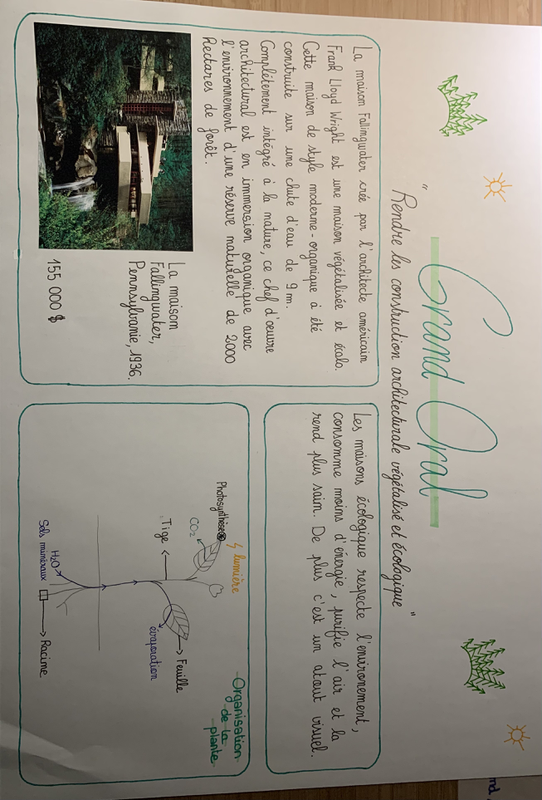 Grand Oral
"Rendre les construction architecturale végétalisé et écologique"
La maison Fallingwater créé par l'architecte américain
Frank Lloyd Wright est une maison végétalisée et écolo.
Cette maison de style moderne-organique à été
construite sur une chute d'eau de 9 m.
Complétement intégré à la nature, ce chef d'oeuvre
architectural est en immersion organique avec
l'environnement d'une réserve naturelle de 2000
hectares de forêt.
La maison
Fallingwater,
Pennsylvanie, 1936.
155 000 $
Les maisons écologique respecte l'environement,
consomme moins d'énergie, purifie l'air et la
rend plus sain. De plus c'est un atout visuel.
-Organisation
de la
plante-
lumière
Photosynthèse
CO2
Tige
Feuille
évaporation
H2O
Sels minéraux
Racine
nd